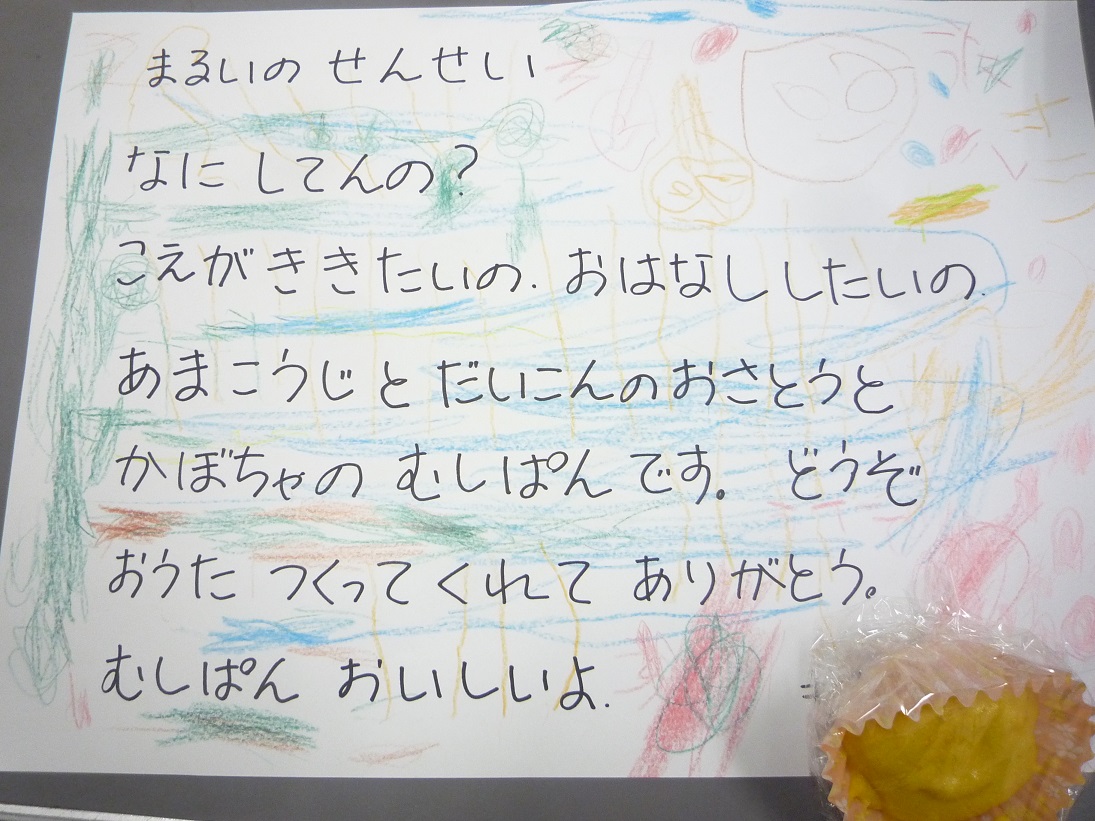 まるいの せんせい
なに してんの?
こえが ききたいの. おはなし したいの.
あまこうじ と だいこんのおさとうと
かぼちゃの むしぱん です。 どうぞ
おうた つくって くれて ありがとう。
むしぱん おいしいよ.